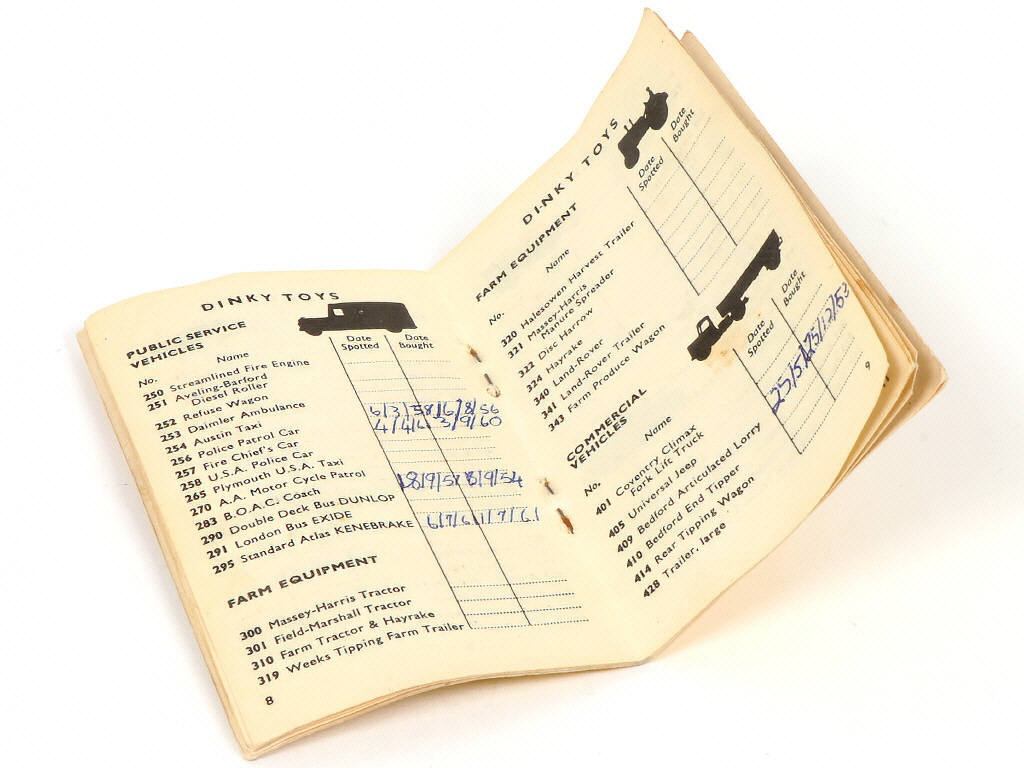 DINKY TOYS
PUBLIC SERVICE
VEHICLES
Date
Spotted
Date
Bought
No.
Name
250 Streamlined Fire Engine
251 Aveling-Barford
Diesel Roller
252 Refuse Wagon
253 Daimler Ambulance
254 Austin Taxi
256 Police Patrol Car
257 Fire Chief's Car
258 U.S.A. Police Car
265 Plymouth U.S.A. Taxi
270 A.A. Motor Cycle Patrol
283 B.O.A.C. Coach
290 Double Deck Bus DUNLOP
291 London Bus EXIDE
295 Standard Atlas KENEBRAKE
6/3/58
16/8/56
4/4/6
3/9/60
18/9/5
8/9/54
6/7/61
1/7/61
FARM EQUIPMENT
300 Massey-Harris Tractor
301 Field-Marshall Tractor
310 Farm Tractor & Hayrake
319 Weeks Tipping Farm Trailer
8
DINKY TOYS
FARM EQUIPMENT
Date
Spotted
Date
Bought
No.
Name
320 Halesowen Harvest Trailer
321 Massey-Harris
Manure Spreader
322 Disc Harrow
324 Hayrake
340 Land-Rover
341 Land-Rover Trailer
343 Farm Produce Wagon
COMMERCIAL
VEHICLES
Date
Spotted
Date
Bought
No.
Name
401 Coventry Climax
Fork Lift Truck
405 Universal Jeep
409 Bedford Articulated Lorry
410 Bedford End Tipper
414 Rear Tipping Wagon
428 Trailer, large
25/5/
25/12/53
9